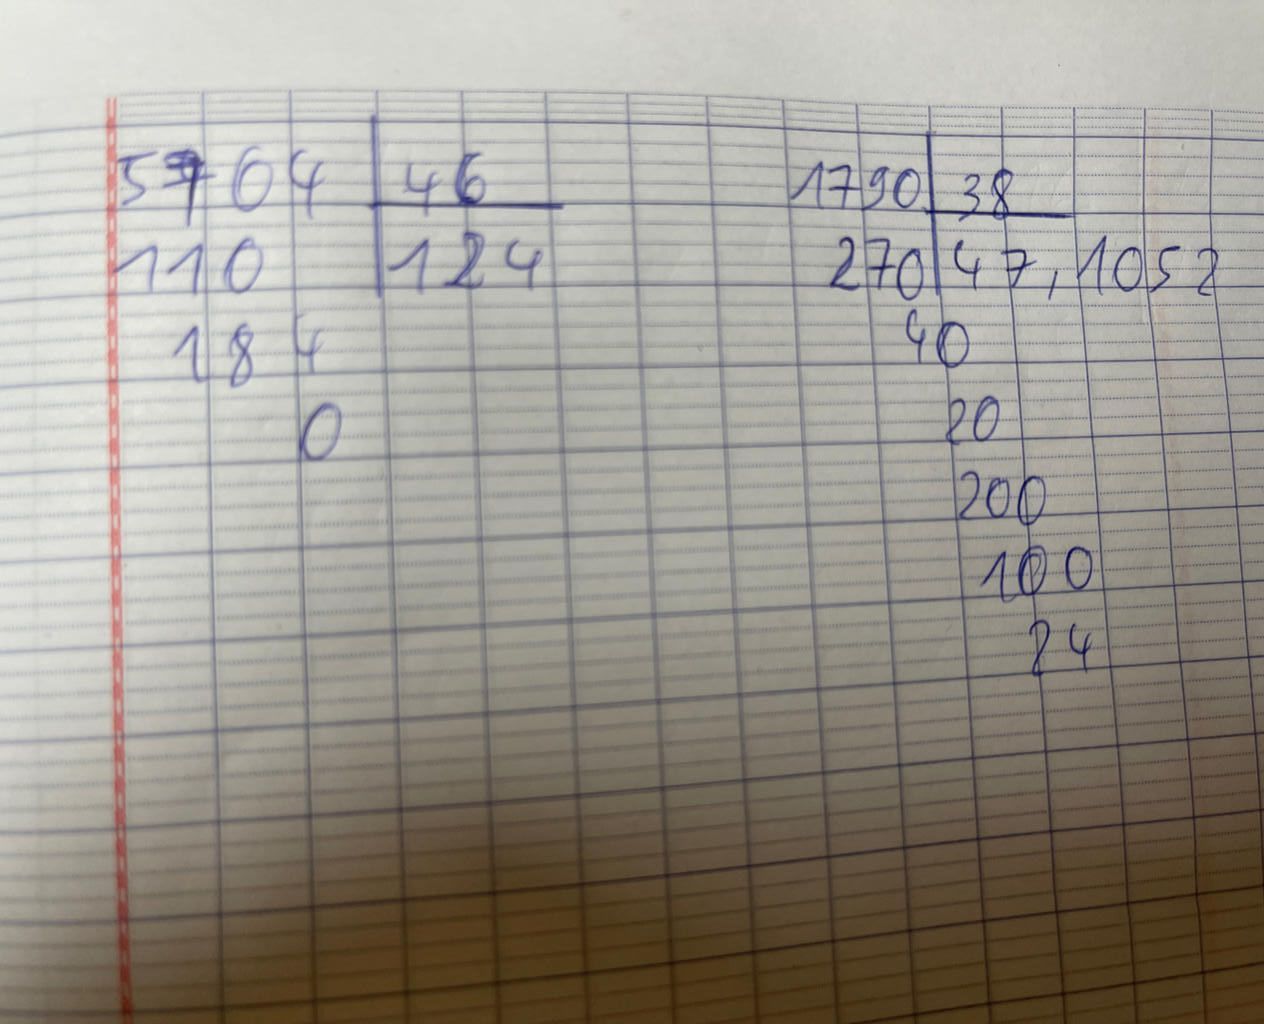 5704 46
110 124
184
0
1790 38
270 47,1052
40
20
200
100
24